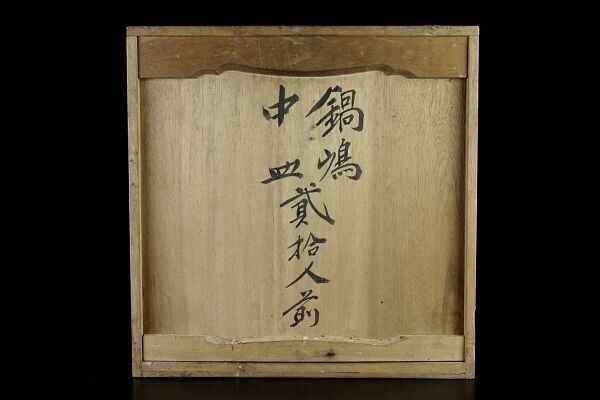 鍋嶋
中皿
貳拾人前